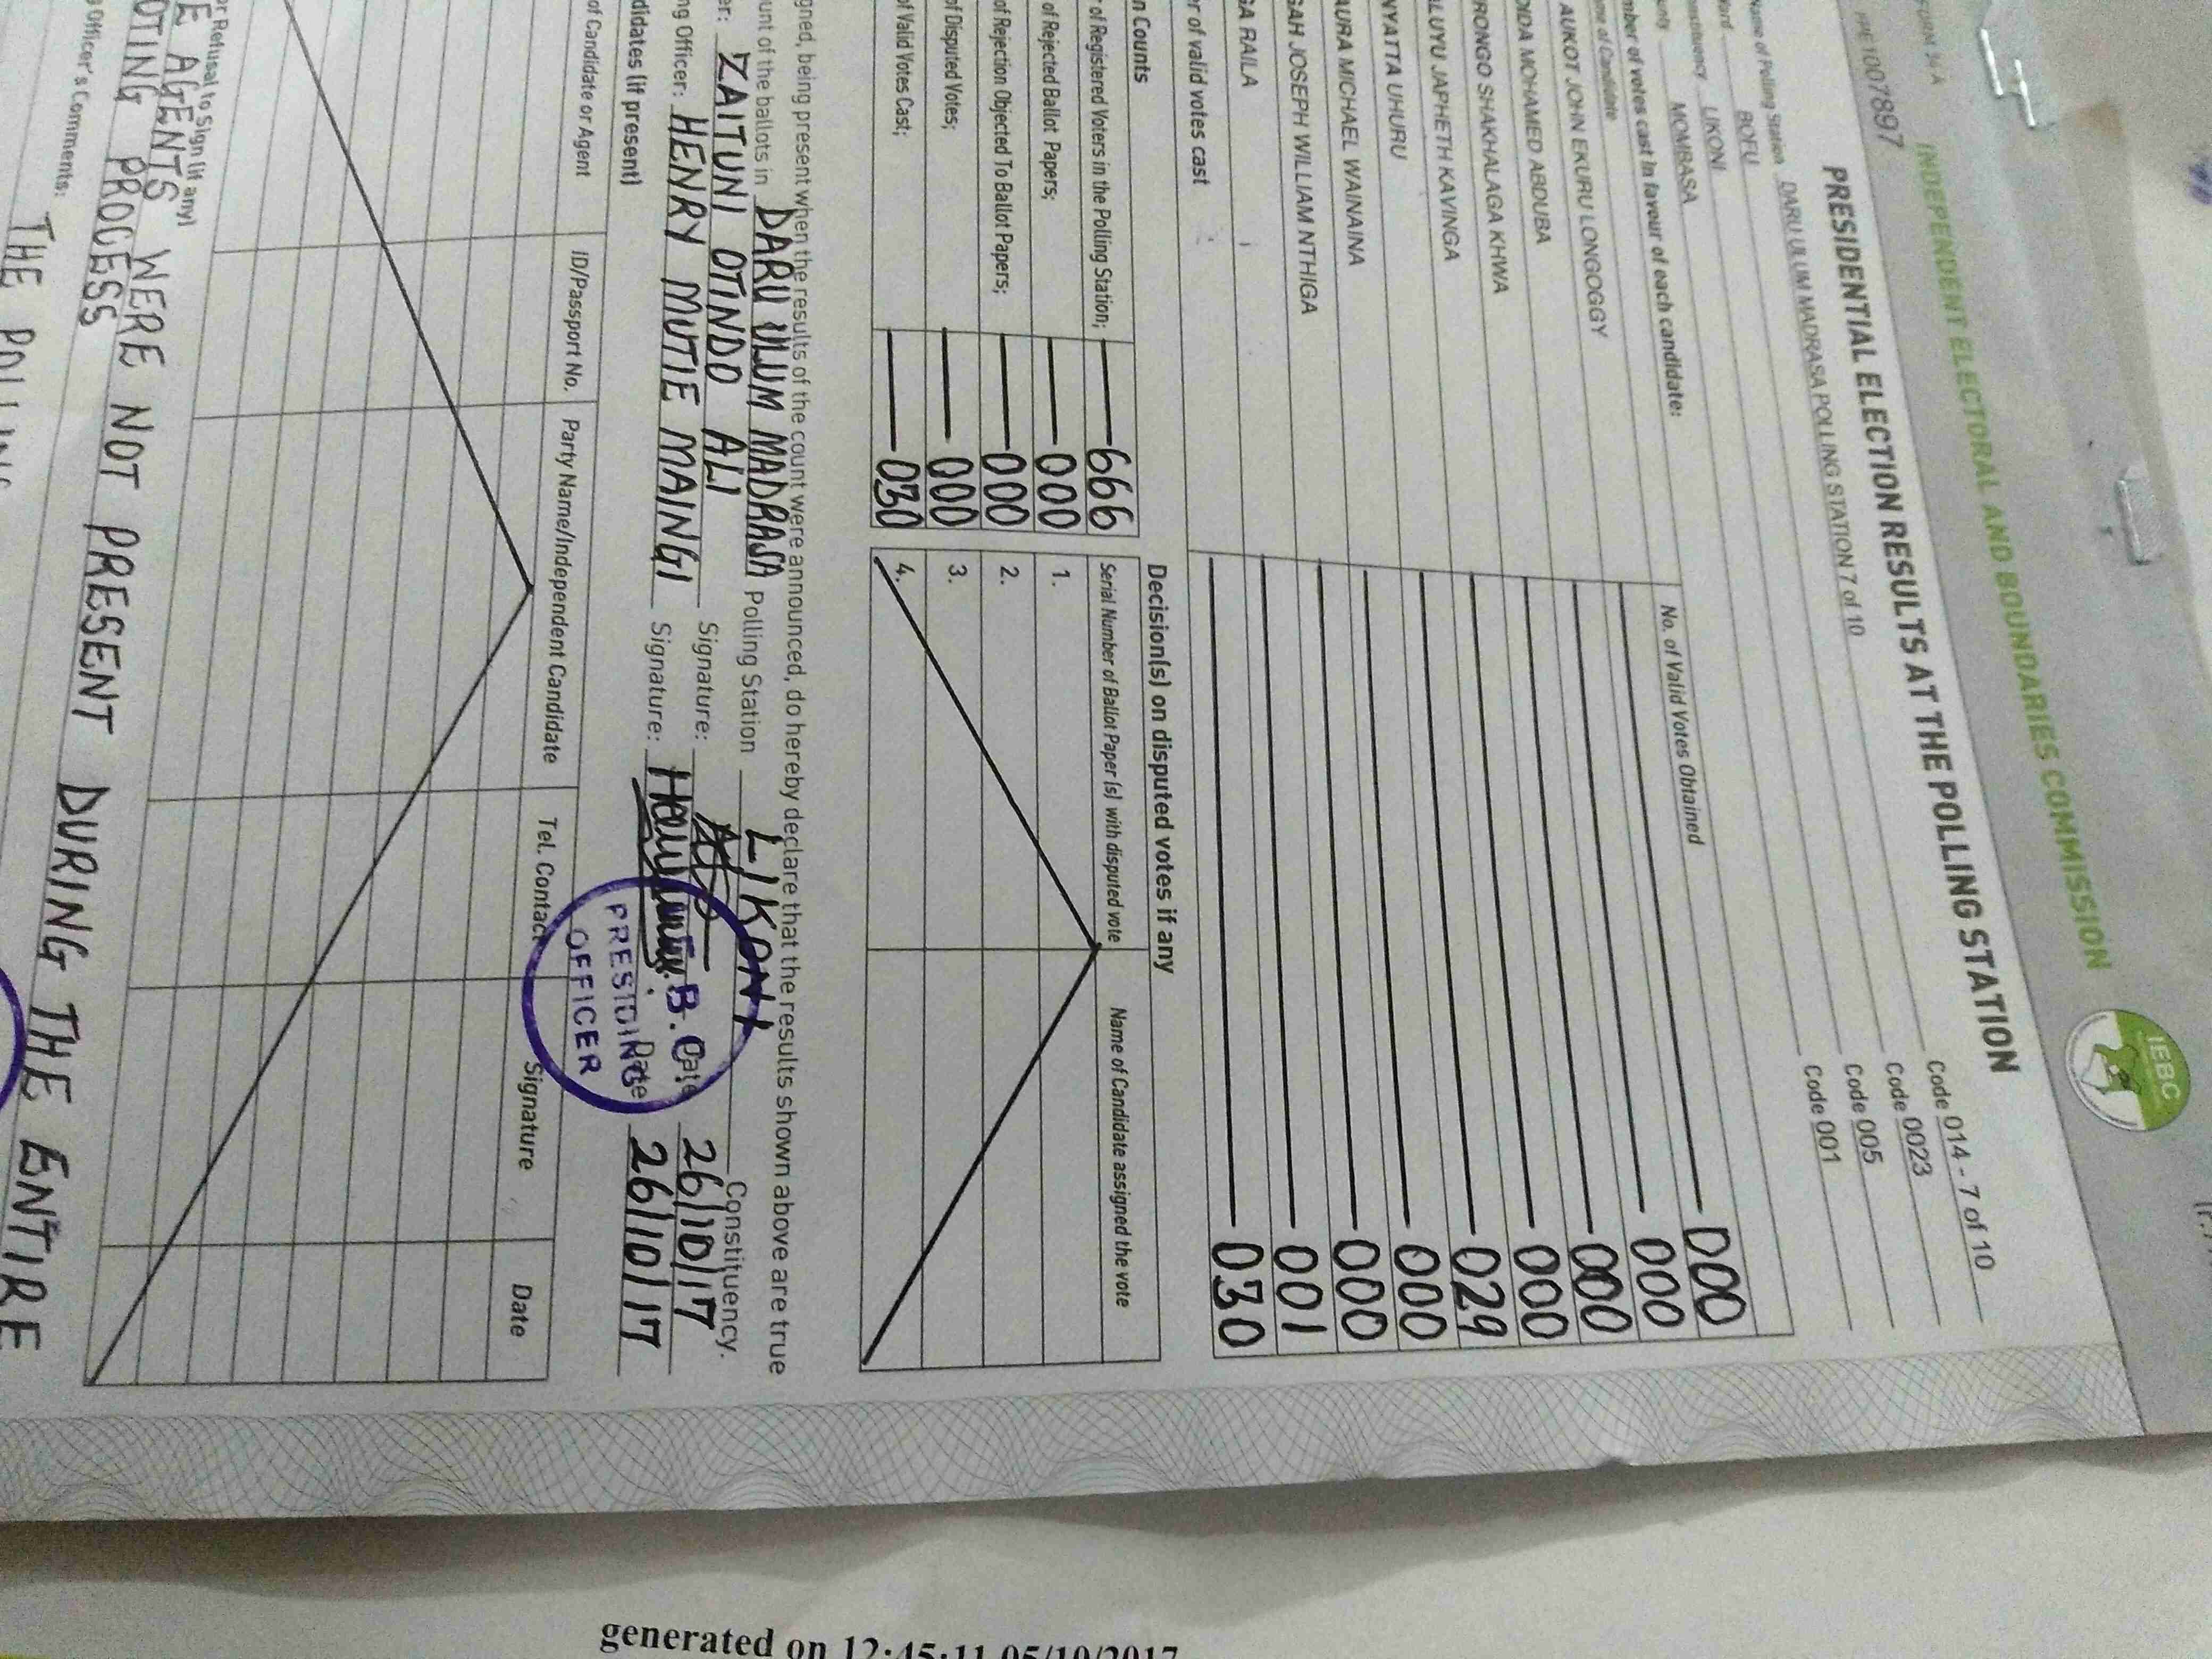 INDEPENDENT ELECTORAL AND BOUNDARIES COMMISSION
IEBC
1007897
PRESIDENTIAL ELECTION RESULTS AT THE POLLING STATION
Name of Polling Station DARU ULUM MADRASA POLLING STATION 7 of 10 Code 014 - 7 of 10
BOFU Code 0023
LIKONI Code 005
MOMBASA Code 001
of votes cast in favour of each candidate:
of Candidate No. of Valid Votes Obtained
AUKOT JOHN EKURU LONGOGGY 000
DIDA MOHAMED ABDUBA 000
RONGO SHAKHALAGA KHWA 000
LUYU JAPHETH KAVINGA 000
NYATTA UHURU 029
AURA MICHAEL WAINAINA 000
GAH JOSEPH WILLIAM NTHIGA 000
GA RAILA 001
r of valid votes cast 030
n Counts
Decision(s) on disputed votes if any
of Registered Voters in the Polling Station; 666
Serial Number of Ballot Paper (s) with disputed vote Name of Candidate assigned the vote
of Rejected Ballot Papers; 000 1.
of Rejection Objected To Ballot Papers; 000 2.
of Disputed Votes; 000 3.
of Valid Votes Cast; 030 4.
gned, being present when the results of the count were announced, do hereby declare that the results shown above are true
unt of the ballots in DARU ULUM MADRASA Polling Station LIKONI Constituency.
er: ZAITUNI OTINDO ALI Signature: Date 26/10/17
ng Officer: HENRY MUTIE MAINGI Signature: Date 26/10/17
PRESIDING
OFFICER
didates (if present)
of Candidate or Agent ID/Passport No. Party Name/Independent Candidate Tel. Contact Signature Date
or Refusal to Sign (if any)
E AGENTS WERE NOT PRESENT DURING THE ENTIRE
OTING PROCESS
g Officer's Comments: THE POLLING
generated on 12:45:11 05/10/2017